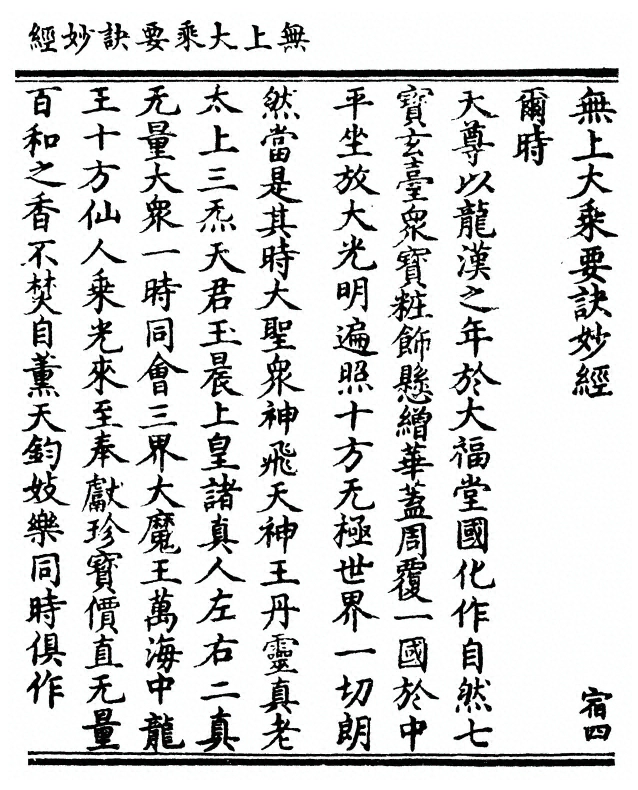 無上大乘要訣妙經
無上大乘要訣妙經 宿四
爾時
天尊以龍漢之年於大福堂國化作自然七
寶玄臺衆寶粧飾懸繒華蓋周覆一國於中
平坐放大光明遍照十方无極世界一切朗
然當是其時大聖衆神飛天神王丹靈真老
太上三炁天君玉晨上皇諸真人左右二真
无量大衆一時同會三界大魔王萬海中龍
王十方仙人乘光來至奉獻珍寶價直无量
百和之香不焚自薰天鈞妓樂同時俱作